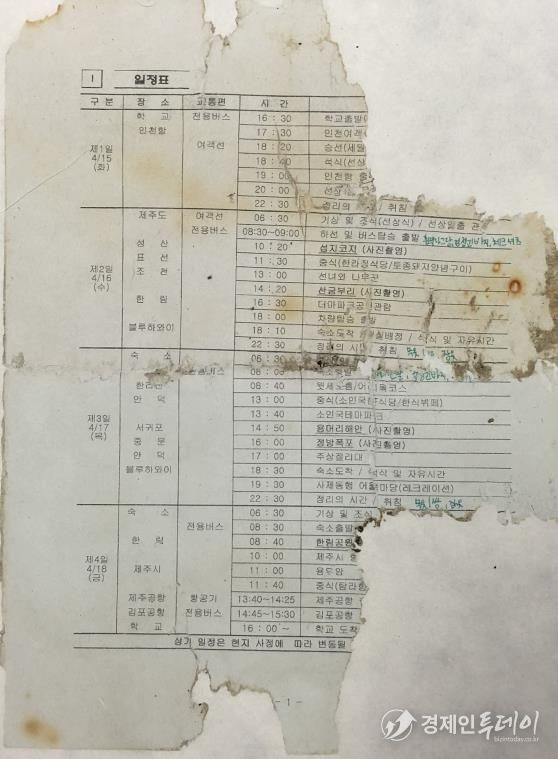 Ⅰ 일정표
구 분 장 소 교통편 시 간
제1일 4/15 (화)
학 교 전용버스 16 : 30 학교출발
인천항 17 : 30 인천여객
여객선 18 : 20 승선(세월
18 : 40 석식(선상
19 : 00 인천항 출
20 : 00 선상
22 : 30 정리의 / 취침
제2일 4/16 (수)
제주도 여객선 06 : 30 기상 및 조식(선상식) / 선상일출 관
전용버스 08:30~09:00 하선 및 버스탑승 출발
성 산 10 : 20 섭지코지 (사진촬영)
표 선 11 : 30 중식(한라정식당/토종돼지양념구이)
조 천 13 : 00 선녀와 나무꾼
14 : 20 산굼부리 (사진촬영)
한 림 16 : 30 더마파크공연관람
18 : 00 차량탑승 출발
블루하와이 18 : 10 숙소도착 실배정 / 석식 및 자유시간
22 : 30 정리의 시 취침
제3일 4/17 (목)
숙 소 06 : 30
08 : 00 숙소출발
한라산 08 : 40 윗세오름/어리목코스
안 덕 13 : 00 중식(소인국 식당/한식뷔페)
13 : 40 소인국테마파크
서귀포 14 : 50 용머리해안 (사진촬영)
중 문 16 : 00 정방폭포 (사진촬영)
안 덕 17 : 00 주상절리대
블루하와이 18 : 30 숙소도착 / 석식 및 자유시간
19 : 30 사제동행 어울 마당(레크레이션)
22 : 30 정리의 시간 / 취침
제4일 4/18 (금)
숙 소 06 : 30 기상 및 조식
전용버스 08 : 30 숙소출발
한 림 08 : 40 한림공원
10 : 00 제주시
제주시 11 : 00 용두암
11 : 40 중식(탐라
제주공항 항공기 13:40~14:25 제주공항
김포공항 전용버스 14:45~15:30 김포공항
학 교 16 : 00 ~ 학교 도착
상기 일정은 현지 사정에 따라 변동될
- 1 -
경제인투데이
bizintoday.co.kr